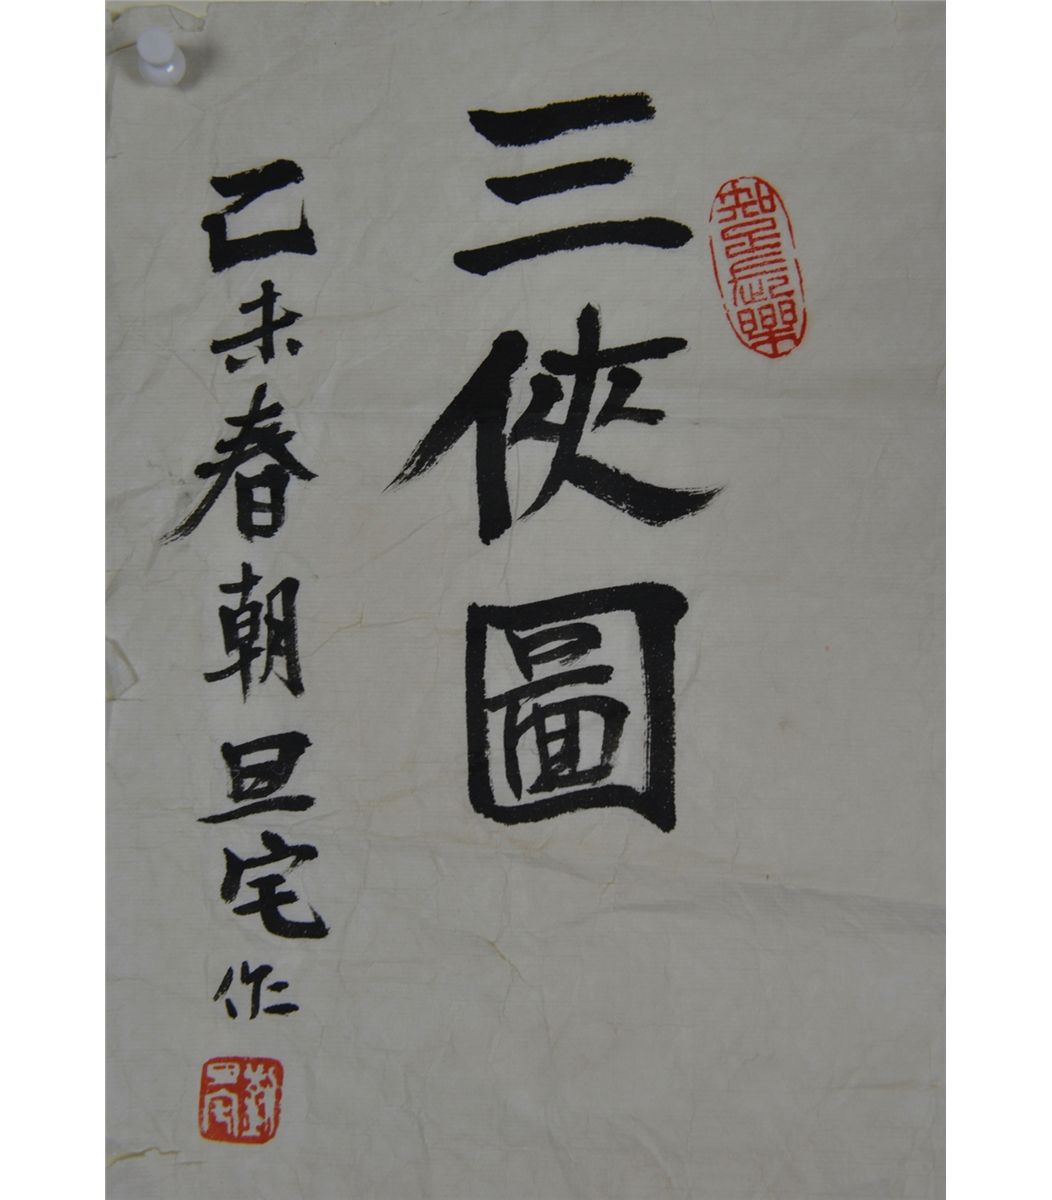 三俠圖
己未春朝旦宅作